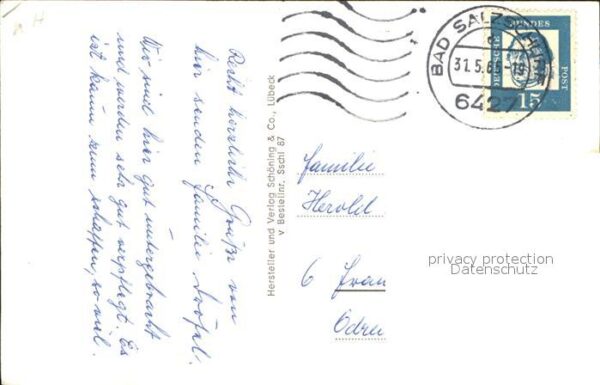 Recht herzliche Grüße von
hier senden Familie
Wir sind hier gut untergebracht
und werden sehr gut verpflegt. Es
ist kaum zum schaffen, so viel.
Hersteller und Verlag Schöning & Co., Lübeck
v Bestellnr. Sschl 87
BAD SALZSCHLIRF
31.5.65-19
6427
DEUTSCHE BUNDESPOST
15
Familie
Herold
6
privacy protection
Datenschutz